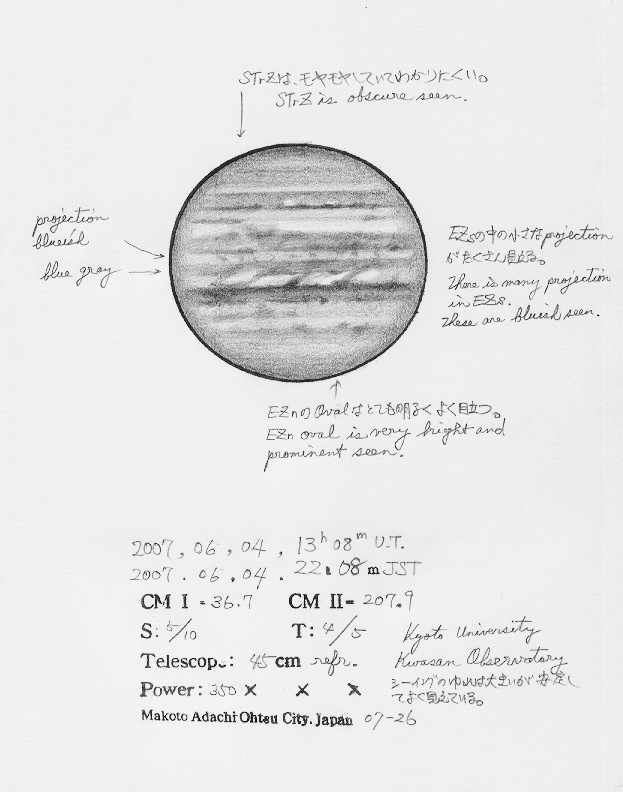 STrZは、モヤモヤしていてわかりにくい。
STrZ is obscure seen.
projection
blueish
blue gray
EZsの中の小さなprojection
がたくさん見える。
There is many projection
in EZs.
These are bluish seen.
EZnのOvalはとても明るくよく目立つ。
EZn oval is very bright and
prominent seen.
2007, 06, 04, 13h 08m U.T.
2007. 06. 04. 22h 08m JST
CM I = 36.7 CM II= 207.9
S: 5/10 T: 4/5 Kyoto University
Telescope: 45cm refr. Kwasan Observatory
Power: 350 × × × シーイングのゆれは大きいが安定し
てよく見えている。
Makoto Adachi Ohtsu City. Japan 07-26